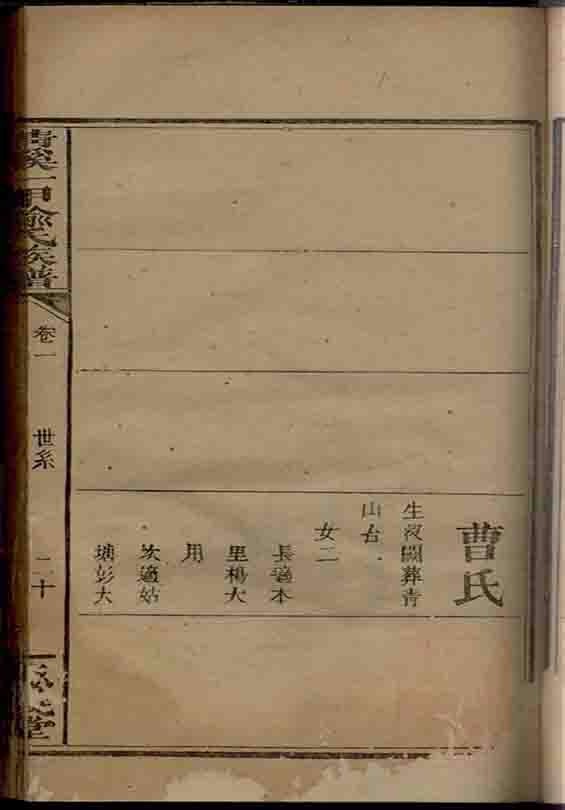 曹氏
生沒闕葬青
山台
女二
長適本
里楊大
用
次適姑
塘彭大
青溪一甲俞氏族譜
卷一
世系
二十
堂